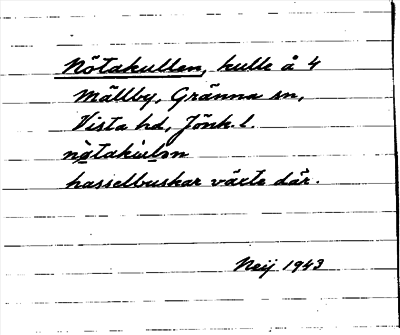 Nötakullen, kulle å 4
Mällby, Gränna sn,
Vista hd, Jönk. l.
hasselbuskar växte där.
Neij 1943